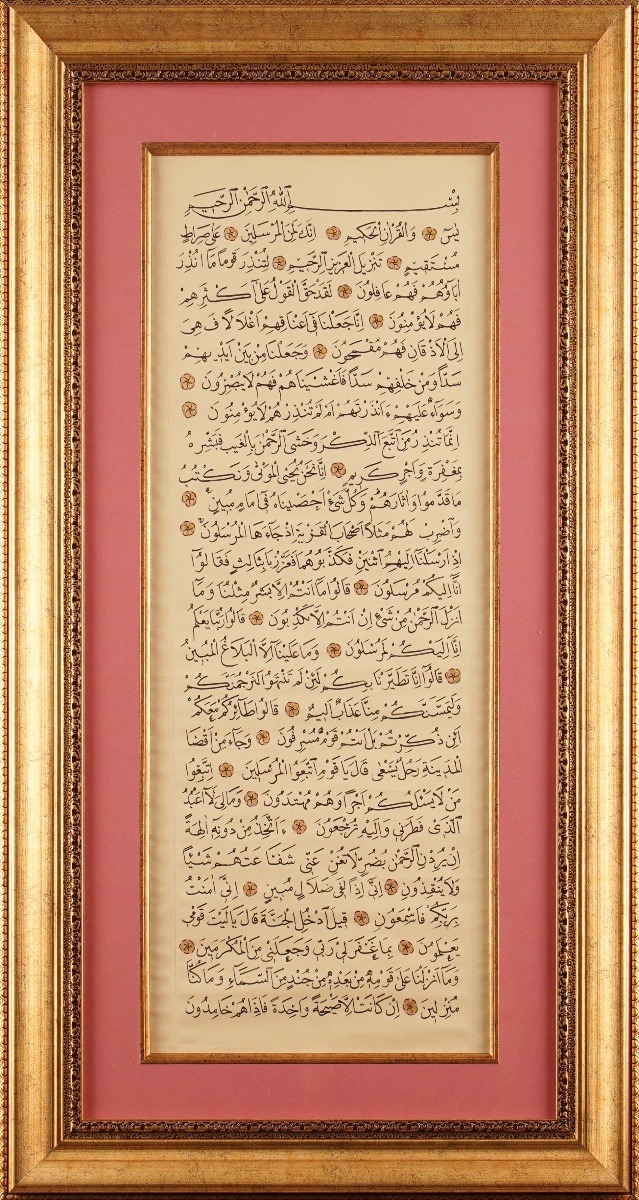 بِسْمِ اللّٰهِ الرَّحْمٰنِ الرَّحِيمِ
يٰسٓ وَالْقُرْاٰنِ الْحَكِيمِ اِنَّكَ لَمِنَ الْمُرْسَلِينَ عَلٰى صِرَاطٍ
مُسْتَقِيمٍ تَنْزِيلَ الْعَزِيزِ الرَّحِيمِ لِتُنْذِرَ قَوْمًا مَا اُنْذِرَ
اٰبَاؤُهُمْ فَهُمْ غَافِلُونَ لَقَدْ حَقَّ الْقَوْلُ عَلٰى اَكْثَرِهِمْ
فَهُمْ لَا يُؤْمِنُونَ اِنَّا جَعَلْنَا فِى اَعْنَاقِهِمْ اَغْلَالًا فَهِىَ
اِلَى الْاَذْقَانِ فَهُمْ مُقْمَحُونَ وَجَعَلْنَا مِنْ بَيْنِ اَيْدِيهِمْ
سَدًّا وَمِنْ خَلْفِهِمْ سَدًّا فَاَغْشَيْنَاهُمْ فَهُمْ لَا يُبْصِرُونَ
وَسَوَاءٌ عَلَيْهِمْ ءَاَنْذَرْتَهُمْ اَمْ لَمْ تُنْذِرْهُمْ لَا يُؤْمِنُونَ
اِنَّمَا تُنْذِرُ مَنِ اتَّبَعَ الذِّكْرَ وَخَشِىَ الرَّحْمٰنَ بِالْغَيْبِ فَبَشِّرْهُ
بِمَغْفِرَةٍ وَاَجْرٍ كَرِيمٍ اِنَّا نَحْنُ نُحْيِى الْمَوْتٰى وَنَكْتُبُ
مَا قَدَّمُوا وَاٰثَارَهُمْ وَكُلَّ شَىْءٍ اَحْصَيْنَاهُ فِى اِمَامٍ مُبِينٍ
وَاضْرِبْ لَهُمْ مَثَلًا اَصْحَابَ الْقَرْيَةِ اِذْ جَاءَهَا الْمُرْسَلُونَ
اِذْ اَرْسَلْنَا اِلَيْهِمُ اثْنَيْنِ فَكَذَّبُوهُمَا فَعَزَّزْنَا بِثَالِثٍ فَقَالُوا
اِنَّا اِلَيْكُمْ مُرْسَلُونَ قَالُوا مَا اَنْتُمْ اِلَّا بَشَرٌ مِثْلُنَا وَمَا
اَنْزَلَ الرَّحْمٰنُ مِنْ شَىْءٍ اِنْ اَنْتُمْ اِلَّا تَكْذِبُونَ قَالُوا رَبُّنَا يَعْلَمُ
اِنَّا اِلَيْكُمْ لَمُرْسَلُونَ وَمَا عَلَيْنَا اِلَّا الْبَلَاغُ الْمُبِينُ
قَالُوا اِنَّا تَطَيَّرْنَا بِكُمْ لَئِنْ لَمْ تَنْتَهُوا لَنَرْجُمَنَّكُمْ
وَلَيَمَسَّنَّكُمْ مِنَّا عَذَابٌ اَلِيمٌ قَالُوا طَائِرُكُمْ مَعَكُمْ
اَئِنْ ذُكِّرْتُمْ بَلْ اَنْتُمْ قَوْمٌ مُسْرِفُونَ وَجَاءَ مِنْ اَقْصَا
الْمَدِينَةِ رَجُلٌ يَسْعٰى قَالَ يَا قَوْمِ اتَّبِعُوا الْمُرْسَلِينَ اِتَّبِعُوا
مَنْ لَا يَسْئَلُكُمْ اَجْرًا وَهُمْ مُهْتَدُونَ وَمَا لِىَ لَا اَعْبُدُ
الَّذِى فَطَرَنِى وَاِلَيْهِ تُرْجَعُونَ ءَاَتَّخِذُ مِنْ دُونِهِ اٰلِهَةً
اِنْ يُرِدْنِ الرَّحْمٰنُ بِضُرٍّ لَا تُغْنِ عَنِّى شَفَاعَتُهُمْ شَيْئًا
وَلَا يُنْقِذُونِ اِنِّى اِذًا لَفِى ضَلَالٍ مُبِينٍ اِنِّى اٰمَنْتُ
بِرَبِّكُمْ فَاسْمَعُونِ قِيلَ ادْخُلِ الْجَنَّةَ قَالَ يَا لَيْتَ قَوْمِى
يَعْلَمُونَ بِمَا غَفَرَ لِى رَبِّى وَجَعَلَنِى مِنَ الْمُكْرَمِينَ
وَمَا اَنْزَلْنَا عَلٰى قَوْمِهِ مِنْ بَعْدِهِ مِنْ جُنْدٍ مِنَ السَّمَاءِ وَمَا كُنَّا
مُنْزِلِينَ اِنْ كَانَتْ اِلَّا صَيْحَةً وَاحِدَةً فَاِذَا هُمْ خَامِدُونَ